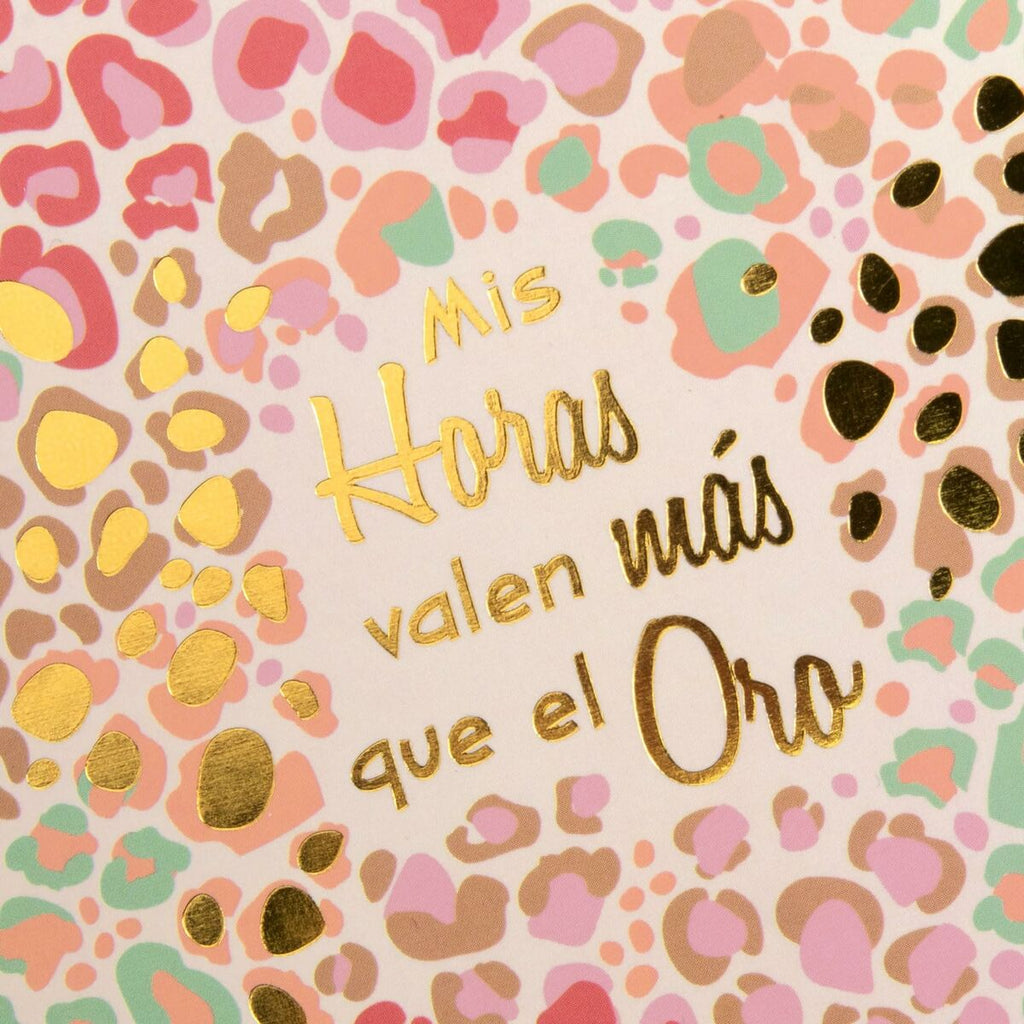 Mis
Horas
valen más
que el Oro